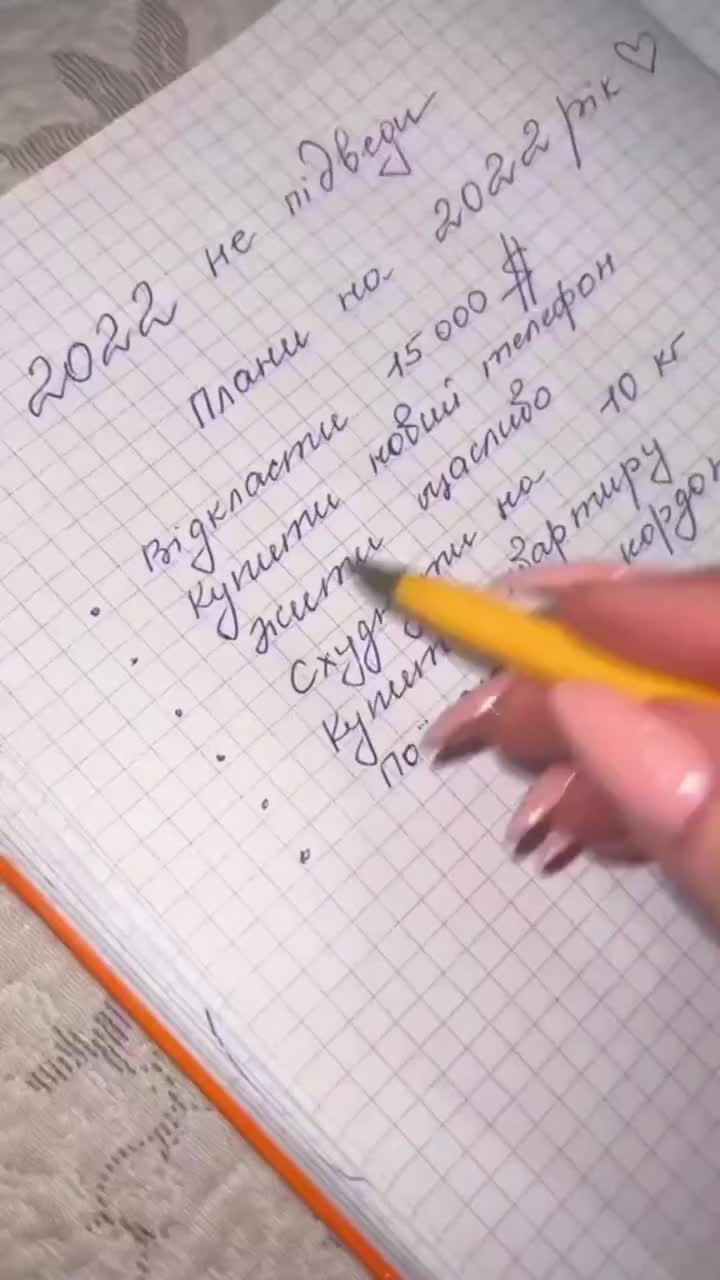 2022 не підведи
Плани на 2022 рік ♡
• Відкласти 15 000 $
• Купити новий телефон
• Жити щасливо
• на 10 кг
• 
• кордон